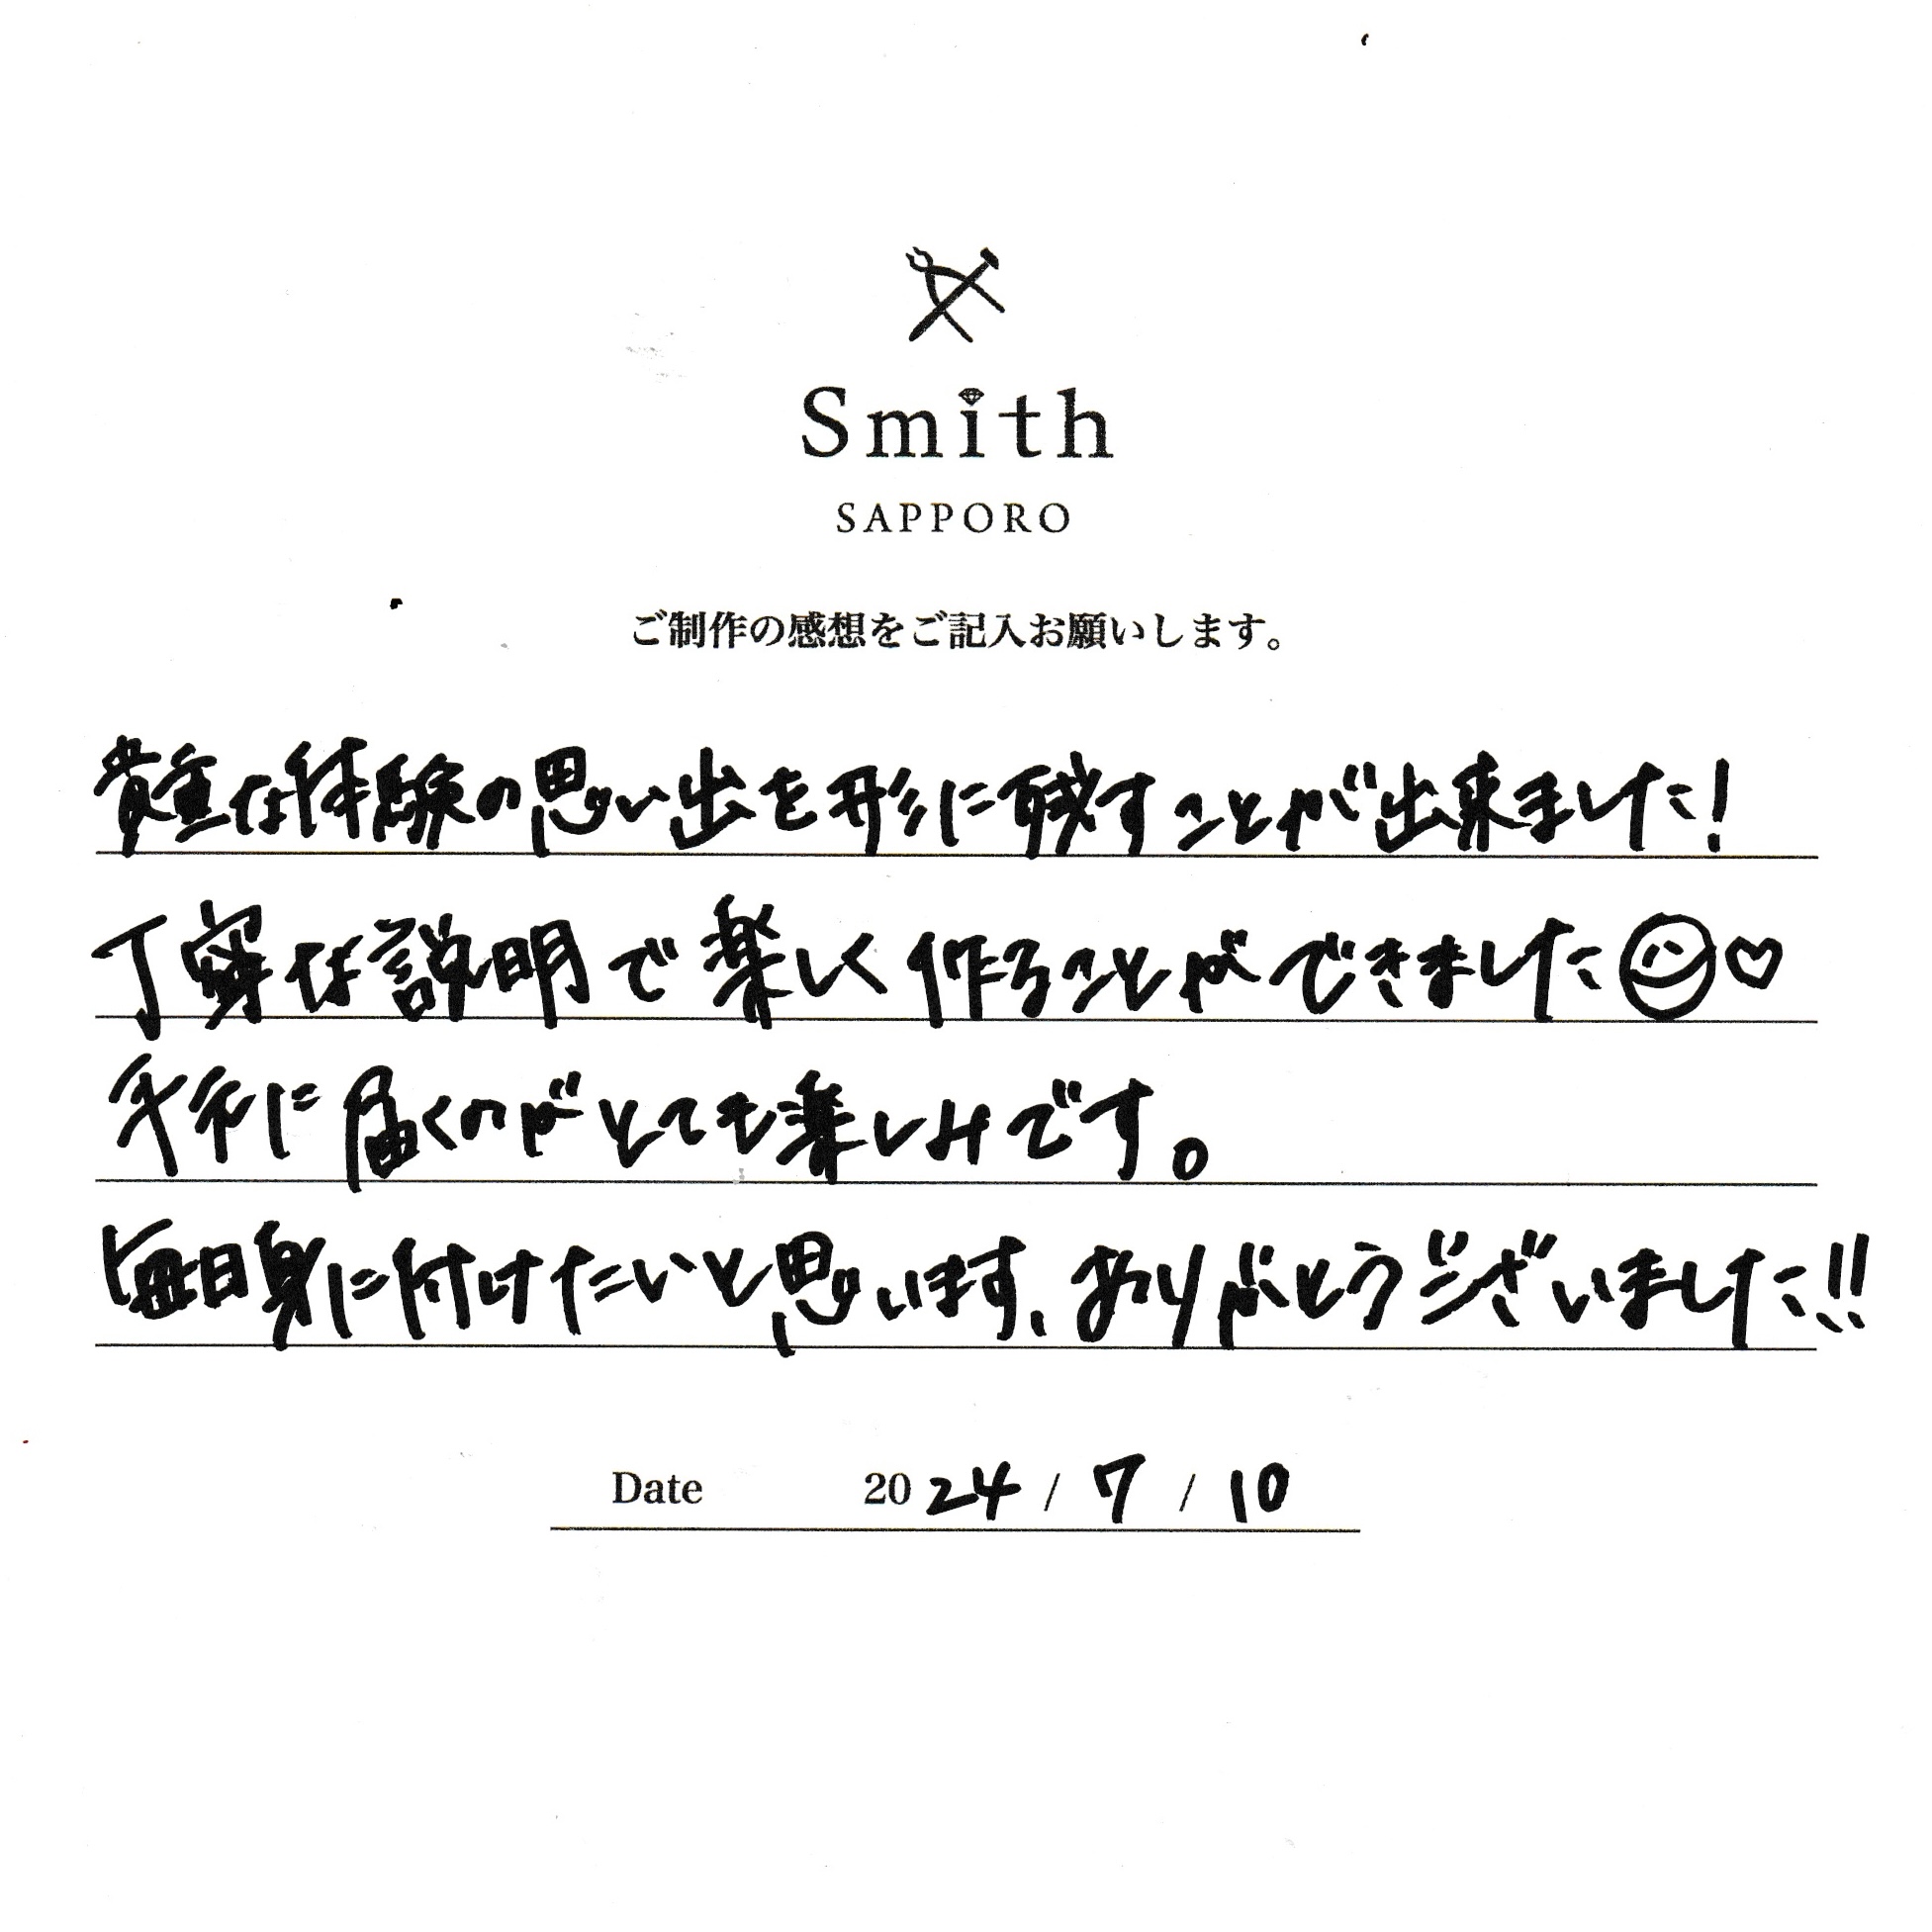 Smith
SAPPORO
ご制作の感想をご記入お願いします。
貴重な体験の思い出を形に残すことが出来ました!
丁寧な説明で楽しく作ることができました☺♡
手元に届くのがとても楽しみです。
毎日身に付けたいと思います、ありがとうございました!!
Date 2024 / 7 / 10